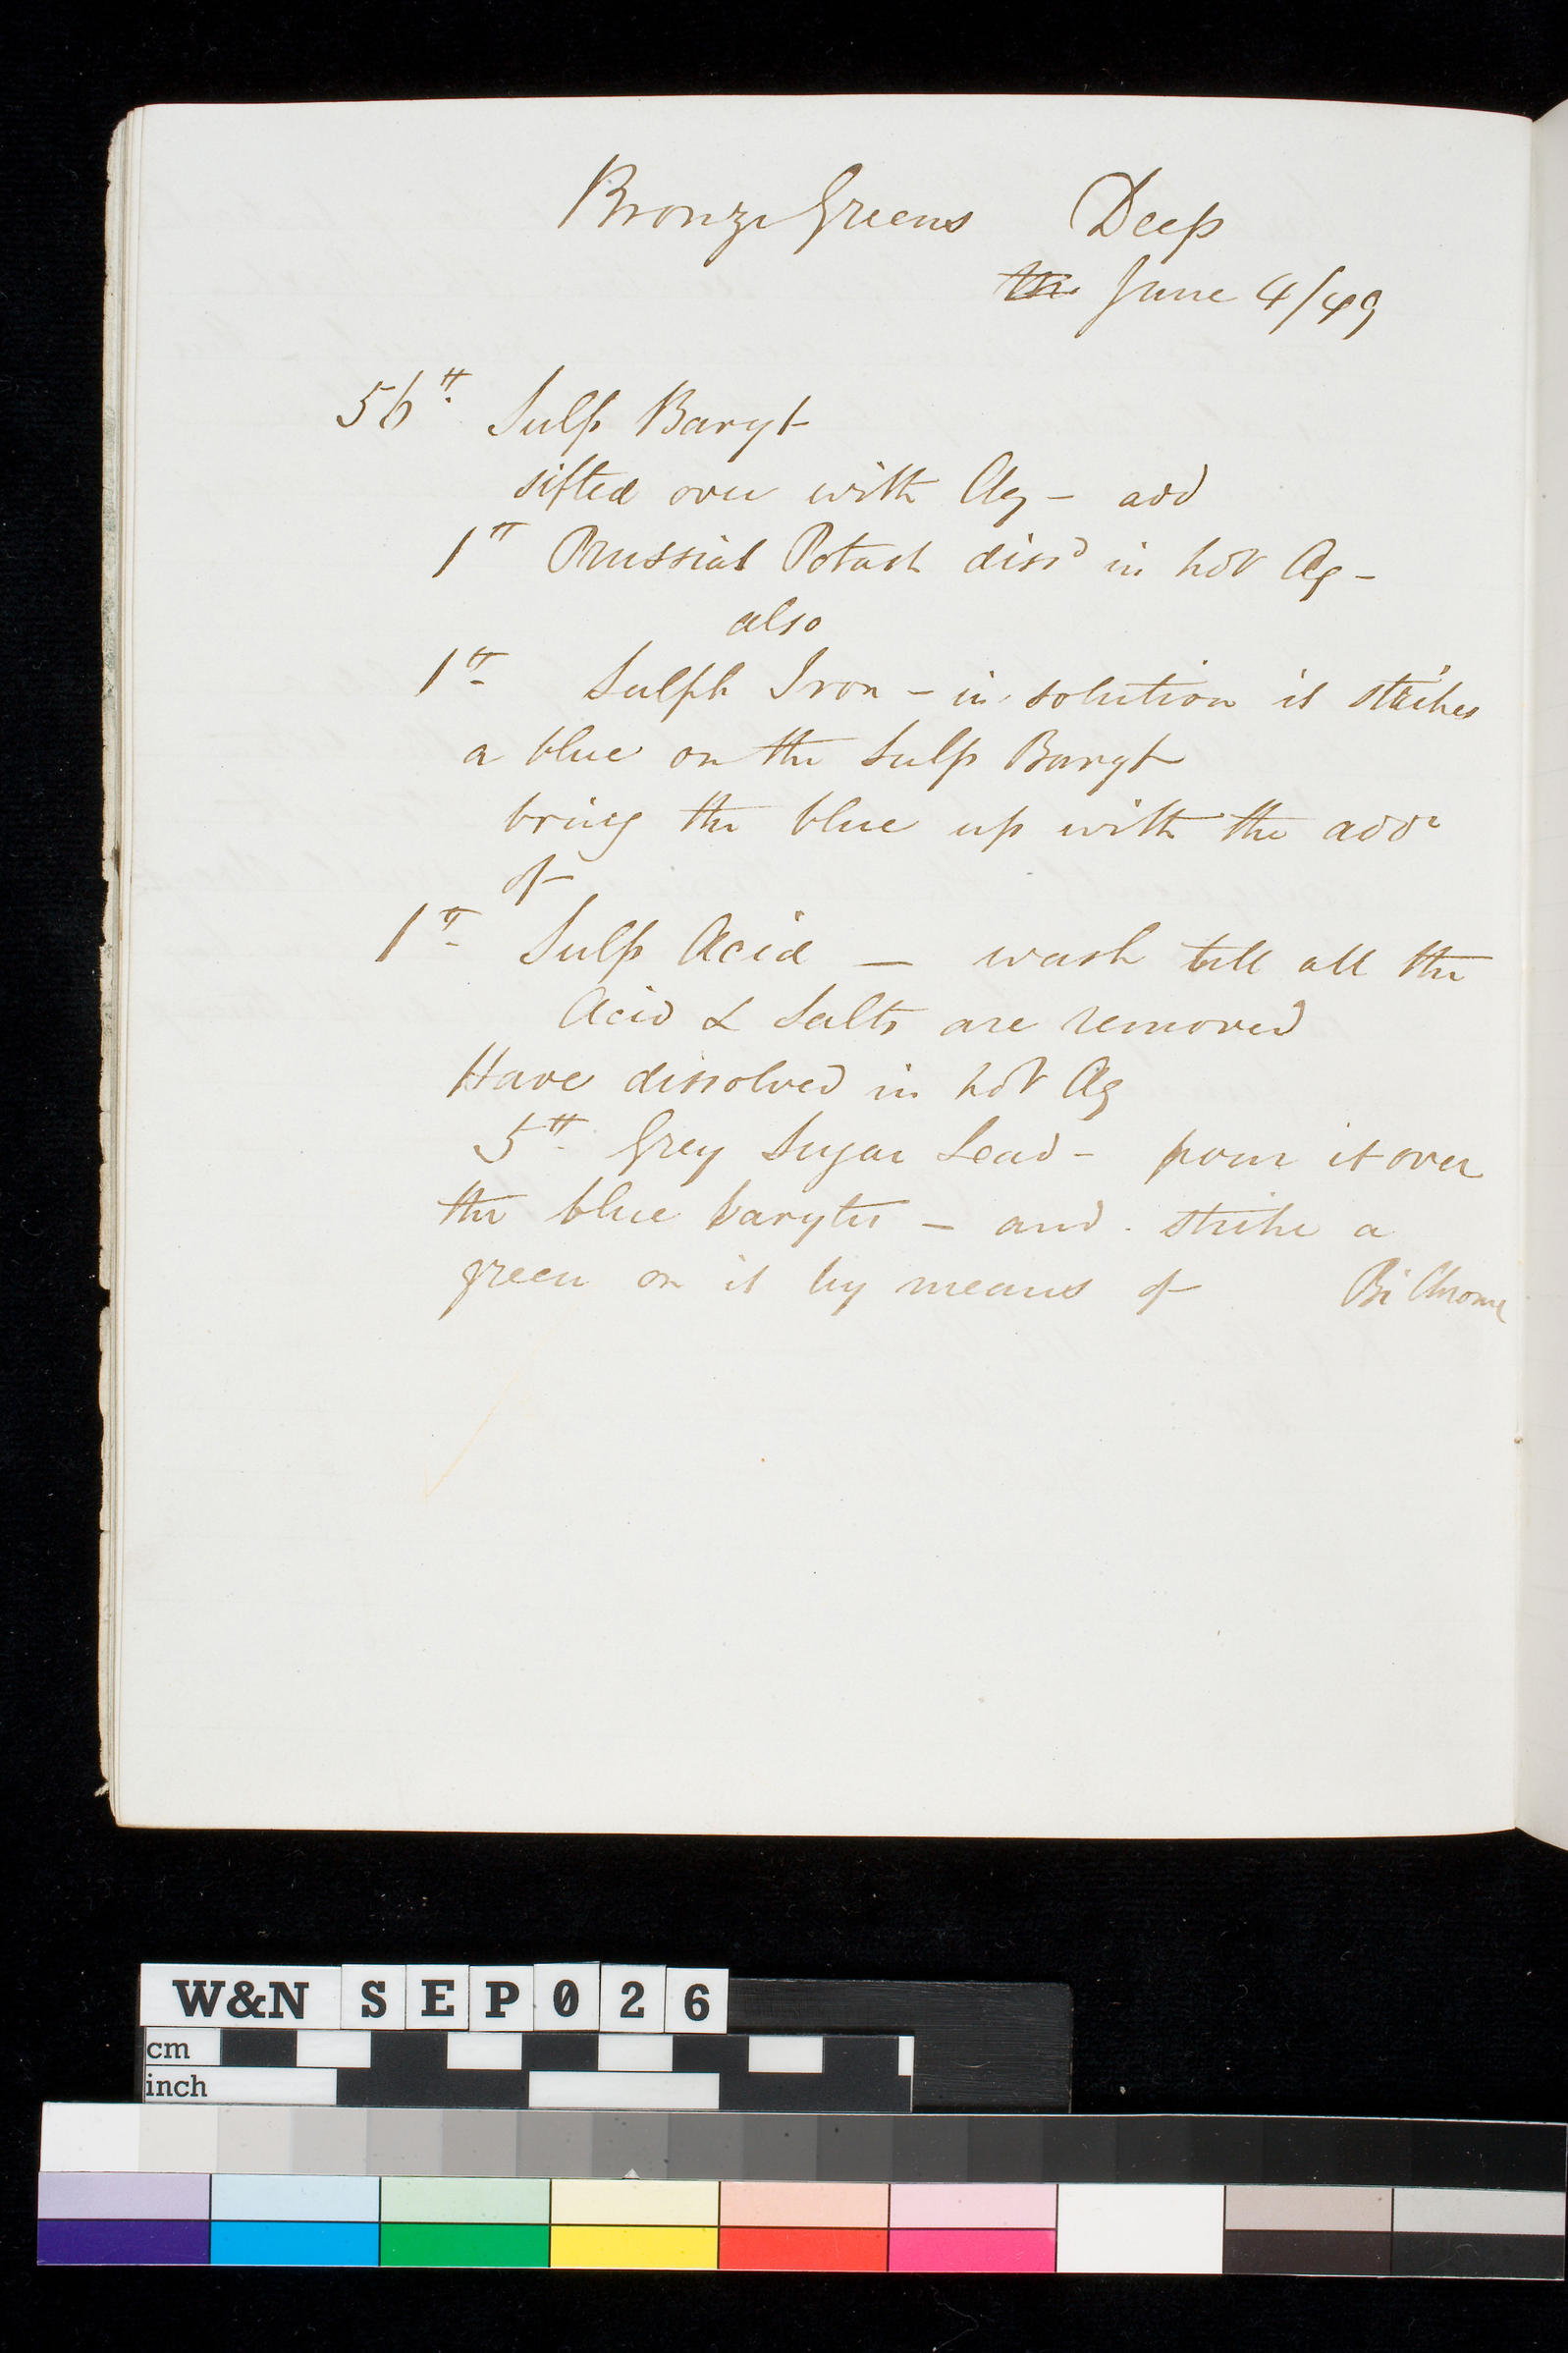 Bronze Greens Deep
the June 4/49
56 ℔ Sulp Baryt
sifted over with Aq – add
1 ℔ Prussiat Potash dissd in hot Aq –
also
1 ℔ Sulph Iron – in solution it strikes
a blue on the Sulp Baryt
bring the blue up with the addn
of
1 ℔ Sulp Acid – wash till all the
Acid & Salts are removed
Have dissolved in hot Aq
5 ℔ Grey Sugar Lead – pour it over
the blue barytes – and strike a
green on it by means of Bi Chrome
W&N SEP026
cm
inch